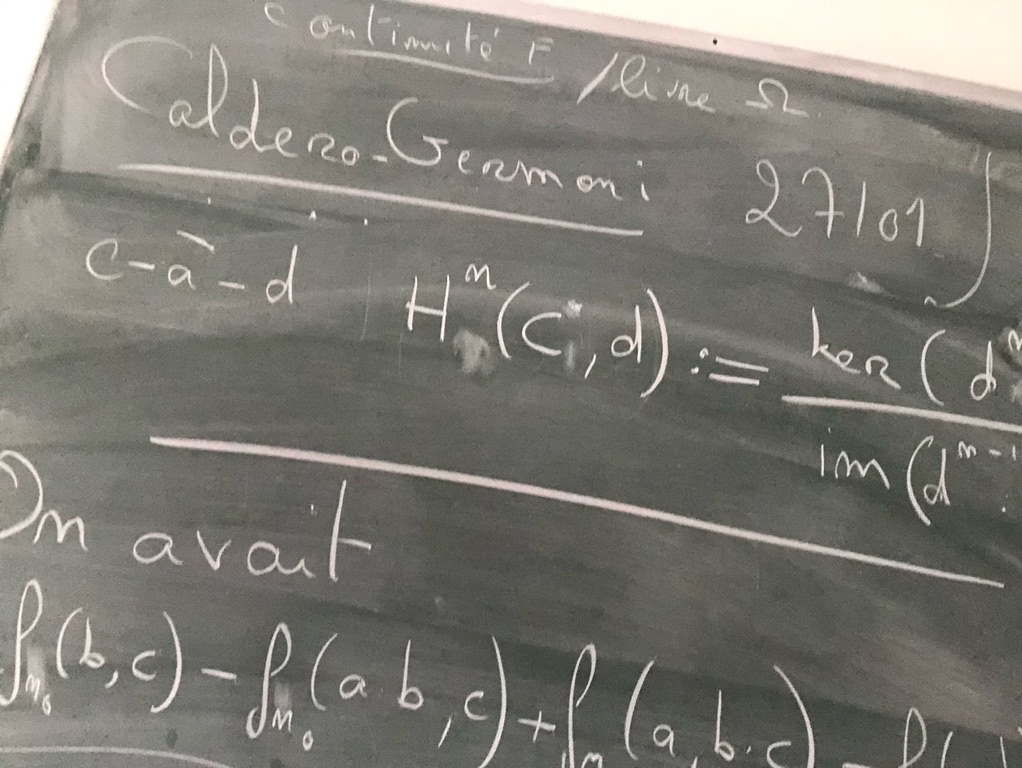 continuité F /livre Ω
Caldero-Germoni 27/01 ∫
c-à-d Hⁿ(C*,d) := ker(dⁿ
im(dⁿ⁻¹
On avait
f_{n₀}(b,c) - f_{n₀}(ab,c) + f_n(a,b·c) - f(